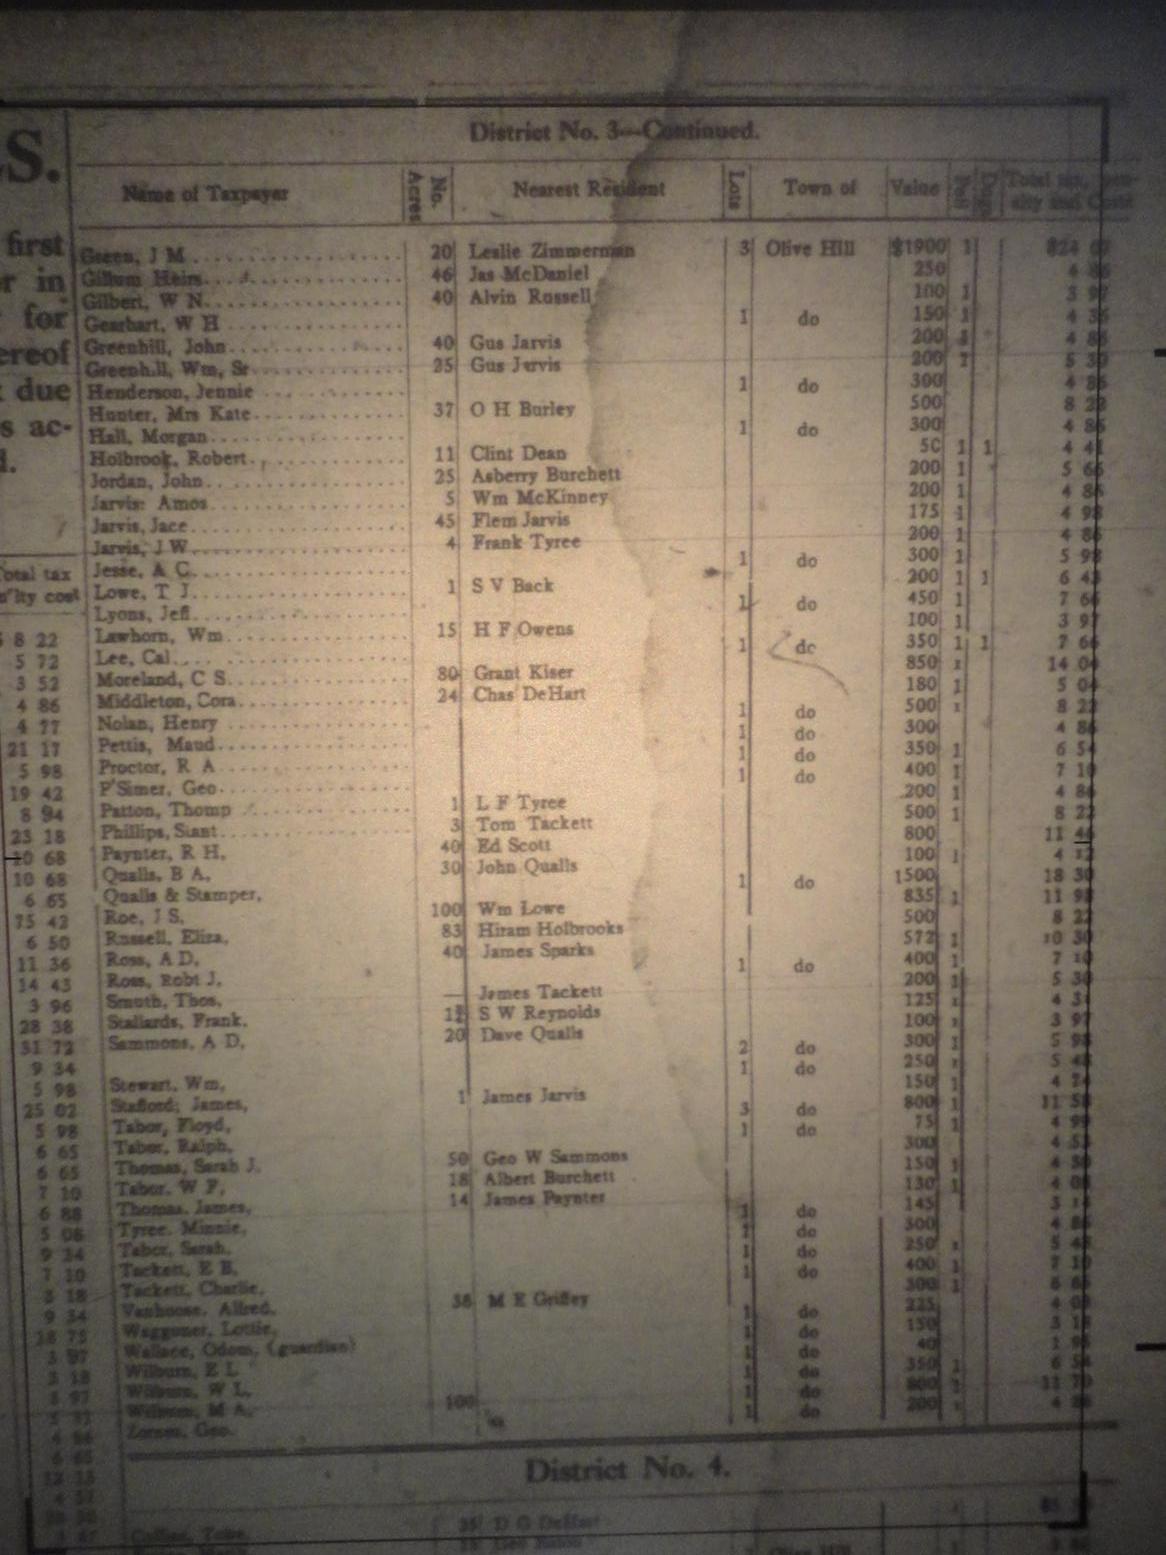 S.
first
r in
for
ereof
due
s ac-
d.
Total tax
n'lty cost
8 22
5 72
3 52
4 86
4 77
21 17
5 98
19 42
8 94
23 18
10 68
10 68
6 65
75 42
6 50
11 36
14 43
3 96
28 38
31 72
9 34
5 98
25 02
5 98
6 65
6 65
7 10
6 88
5 08
9 34
7 10
3 18
9 34
18 75
3 97
3 18
3 97
District No. 3—Continued.
Name of Taxpayer No. Acres Nearest Resident Lots Town of Value Poll Dogs Total tax, pen- alty and Cost
Green, J M 20 Leslie Zimmerman 3 Olive Hill $1900 1 $24
Gillum Heirs 46 Jas McDaniel 250 4 86
Gilbert, W N 40 Alvin Rossell 100 1 3 97
Gearhart, W H 1 do 150 1 4
Greenhill, John 40 Gus Jarvis 200 1 4 86
Greenhill, Wm, Sr 25 Gus Jervis 200 1 5 30
Henderson, Jennie 1 do 300 4 86
Hunter, Mrs Kate 37 O H Burley 500 8 22
Hall, Morgan 1 do 300 4 86
Holbrook, Robert 11 Clint Dean 50 1 1 4 41
Jordan, John 25 Asberry Burchett 200 1 5 66
Jarvis: Amos 5 Wm McKinney 200 1 4 86
Jarvis, Jace 45 Flem Jarvis 175 1 4 98
Jarvis, J W 4 Frank Tyree 200 1 4 86
Jesse, A C 1 do 300 1 5 98
Lowe, T J 1 S V Back 200 1 1 6 43
Lyons, Jeff 1 do 450 1 7 66
Lawhorn, Wm 15 H F Owens 100 1 3 97
Lee, Cal 1 do 350 1 1 7 66
Moreland, C S 80 Grant Kiser 850 1 14 04
Middleton, Cora 24 Chas DeHart 180 1 5 04
Nolan, Henry 1 do 500 1 8 22
Pettis, Maud 1 do 300 4 86
Proctor, R A 1 do 350 1 6 54
P'Simer, Geo 1 do 400 1 7 10
Patton, Thomp 1 L F Tyree 200 1 4 86
Phillips, Siant 3 Tom Tackett 500 1 8 22
Paynter, R H, 40 Ed Scott 800 11 46
Qualls, B A, 30 John Qualls 100 1 4 12
Qualls & Stamper, 1 do 1500 18 30
Roe, J S, 100 Wm Lowe 835 1 11 98
Russell, Eliza, 83 Hiram Holbrooks 500 8 22
Ross, A D, 40 James Sparks 572 1 10 30
Ross, Robt J, 1 do 400 1 7 10
Smuth, Thos, — James Tackett 200 1 5 30
Stallards, Frank, 1½ S W Reynolds 125 1 4 31
Sammons, A D, 20 Dave Qualls 100 1 3 97
2 do 300 1 5 98
Stewart, Wm, 1 do 250 1 5 48
Stafford; James, 1 James Jarvis 150 1 4 74
Tabor, Floyd, 3 do 800 1 11 58
Tabor, Ralph, 1 do 75 1 4 99
Thomas, Sarah J, 50 Geo W Sammons 300 4 53
Tabor, W F, 18 Albert Burchett 150 1 4 50
Thomas, James, 14 James Paynter 130 1 4 08
Tyree, Minnie, 1 do 145 3 14
Tabor, Sarah, 1 do 300 4 86
Tackett, E B, 1 do 250 1 5 48
Tackett, Charlie, 1 do 400 1 7 10
Vanhoose, Alfred, 38 M E Griffey 300 1 6 66
Waggoner, Lottie, 1 do 225 4
Wallace, Odom, (guardian) 1 do 150 3 18
Wilburn, E L 1 do 40 1 96
Wilburn, W L, 1 do 350 1 6 54
Wilburn, M A, 100 1 do 800 1 11 70
Zornes, Geo. 1 do 200 1 4 86
District No. 4.
Collins, Tobe, D G DeHart
Olive Hill